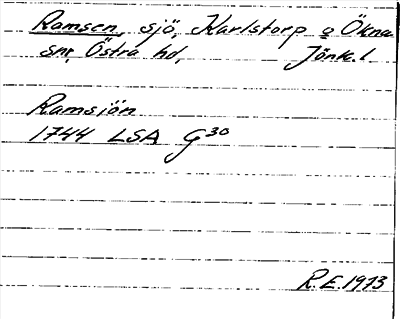 Ramsen, sjö, Karlstorp o Ökna
snr, Östra hd, Jönk. l.
Ramsiön
1744 LSA G30
R.E. 1973